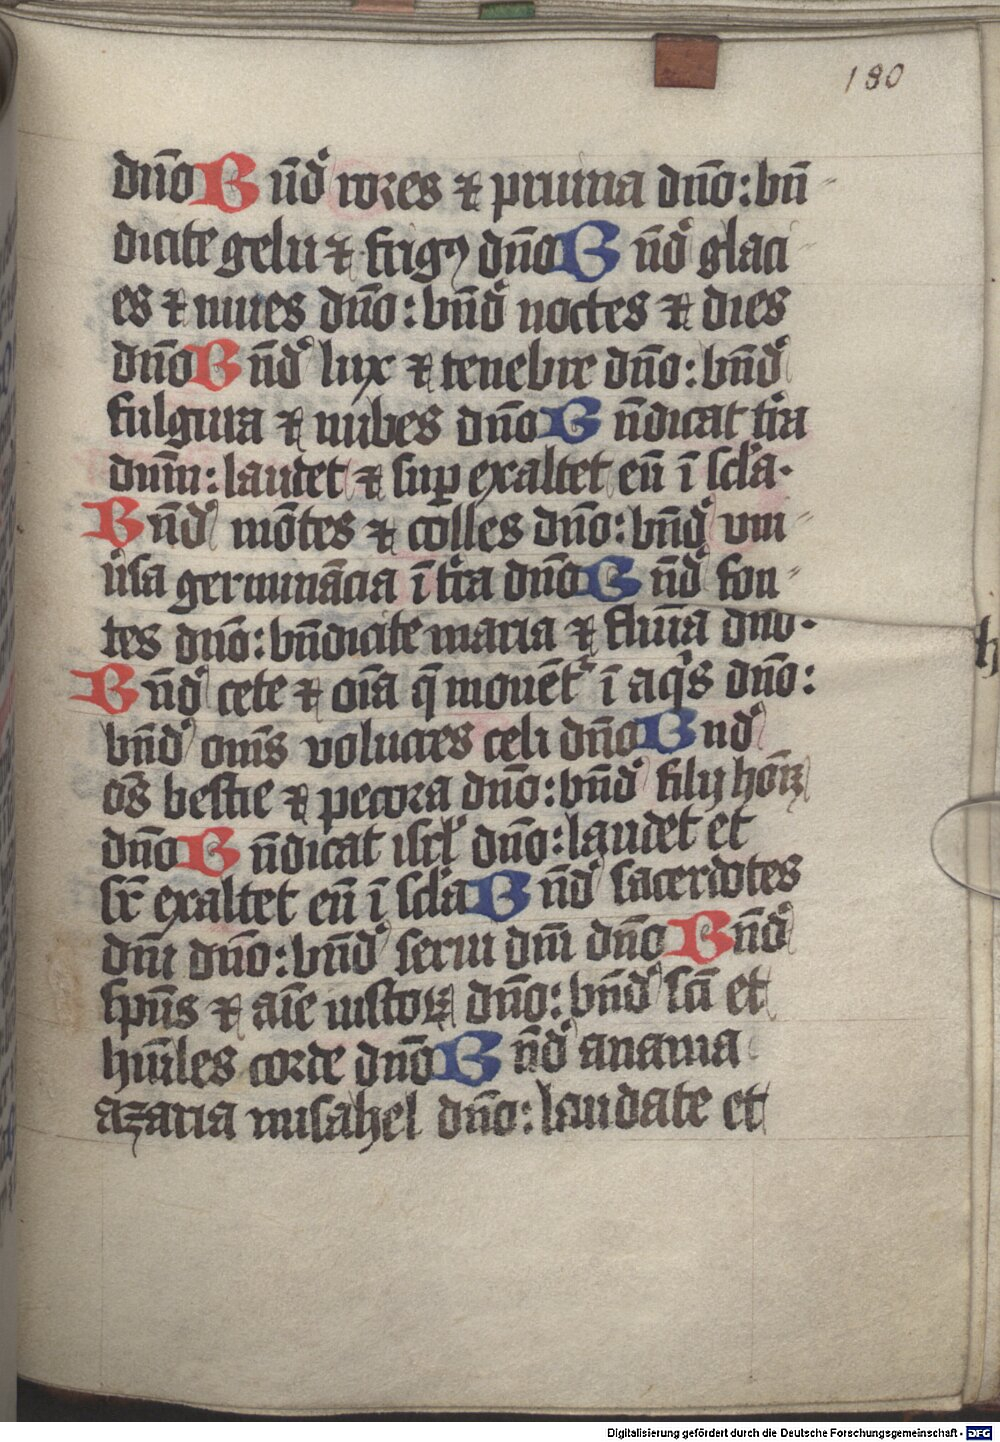 180
dn̄o Bn̄d rores ⁊ pruina dn̄o : bn̄
dicite gelu ⁊ frigꝰ dn̄o Bn̄d glaci
es ⁊ niues dn̄o : bn̄d noctes ⁊ dies
dn̄o Bn̄d lux ⁊ tenebre dn̄o : bn̄d
fulgura ⁊ nubes dn̄o Bn̄dicat tr̄a
dn̄m : laudet ⁊ suꝑ exaltet eū ī scl̄a .
Bn̄d mōtes ⁊ colles dn̄o : bn̄d vni
ūsa germinācia ī tr̄a dn̄o Bn̄d fon
tes dn̄o : bn̄dicite maria ⁊ flūīa dn̄o .
Bn̄d cete ⁊ oīa q̄ mouēt ī aqͥs dn̄o :
bn̄d om̄s volucres celi dn̄o Bnd
om̄s bestie ⁊ pecora dn̄o : bn̄d filij hōīꝝ
dn̄o Bn̄dicat isrl̄ dn̄o : laudet et
sr̄ exaltet eū ī scl̄a Bn̄d sacerdotes
dn̄i dn̄o : bn̄d serui dn̄i dn̄o Bn̄d
sp̄us ⁊ aīe iustoꝝ dn̄o : bn̄d sc̄i et
hūīles corde dn̄o Bn̄d anania
azaria misahel dn̄o : laudate et
Digitalisierung gefördert durch die Deutsche Forschungsgemeinschaft - DFG